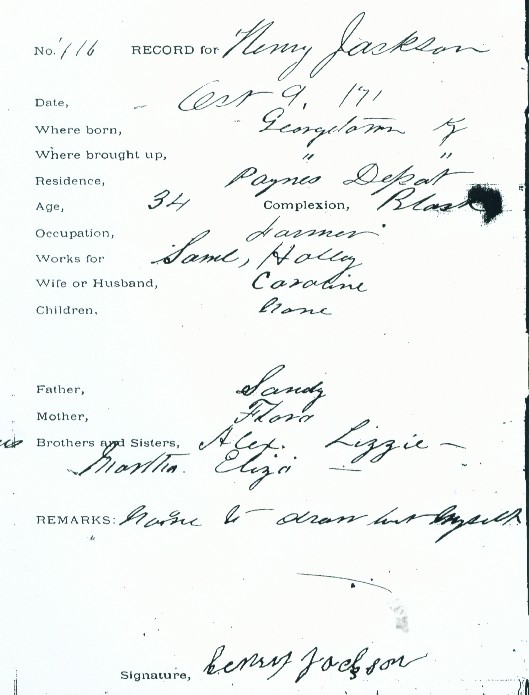 No. 116 RECORD for Henry Jackson
Date, Oct 9, 171
Where born, Georgetown Ky
Where brought up, " "
Residence, Paynes Depot
Age, 34 Complexion, Black
Occupation, Farmer
Works for Saml, Holley
Wife or Husband, Caroline
Children, None
Father, Sandy
Mother, Flora
Brothers and Sisters, Alex. Lizzie —
Martha. Eliza —
REMARKS: None to draw but myself
Signature, henry Jackson